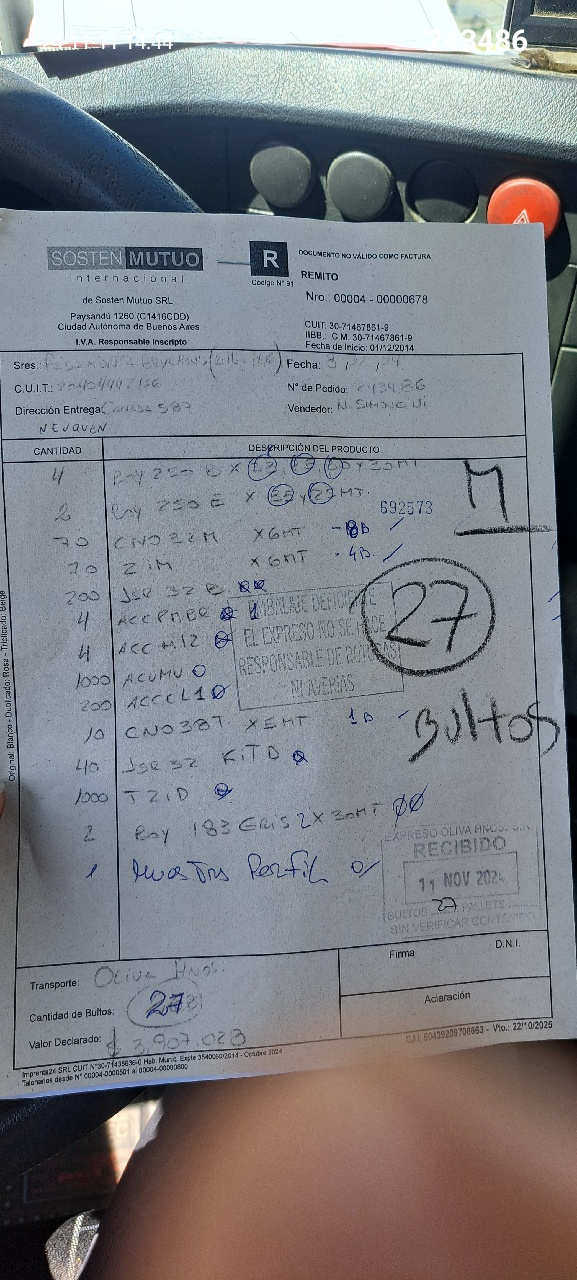 14:44
243486
SOSTEN MUTUO
internacional
de Sosten Mutuo SRL
Paysandú 1260 (C1416CDD)
Ciudad Autónoma de Buenos Aires
I.V.A. Responsable Inscripto
R
Código N° 91
DOCUMENTO NO VÁLIDO COMO FACTURA
REMITO
Nro.: 00004 - 00000678
CUIT: 30-71467861-9
IIBB.: C.M. 30-71467861-9
Fecha de Inicio: 01/12/2014
Sres.:
Fecha:
C.U.I.T.:
N° de Pedido: 243486
Dirección Entrega: 587
Vendedor: N. SIMONCINI
NEUQUEN
CANTIDAD DESCRIPCIÓN DEL PRODUCTO
4 Boy 250 E X 30MT
2 Boy 250 E X 35 y 27 MT.
692573
70 CNO32M X6MT - 8B
70 ZIM X 6MT - 4B.
200 JSR 32 B
4 ACCPMBR 1
4 ACC M12
1000 ACUMU 0
200 ACCCL1
10 CNO38T X5MT 1B
40 JSR 32 KITD
1000 TZID
2 Boy 183 GRIS 2X30MT
1 Muestra Perfil
M
27
Bultos
EMBALAJE DEFICIENTE
EL EXPRESO NO SE HACE
RESPONSABLE DE ROTURAS
NI AVERIAS
EXPRESO OLIVA HNOS. S.A.
RECIBIDO
11 NOV 2024
BULTOS 27 PALLETS
SIN VERIFICAR CONTENIDO
Transporte: Oliva Hnos.
Cantidad de Bultos: 27
Valor Declarado: $ 3.907.028
Firma D.N.I.
Aclaración
Imprenta24 SRL CUIT N°30-71435636-0 Hab. Munic. Expte 3540060/2014 - Octubre 2024
Talonarios desde N° 00004-0000501 al 00004-00000800
CAI. 50439209708663 - Vto.: 22/10/2025
Original: Blanco - Duplicado: Rosa - Triplicado: Beige